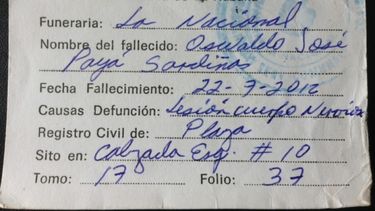 Funeraria: La Nacional
Nombre del fallecido: Oswaldo José
Payá Sardiñas
Fecha Fallecimiento: 22-7-2012
Causas Defunción: Lesión cuerpo
Registro Civil de: Plaza
Sito en: Calzada Esq. # 10
Tomo: 17 Folio: 37